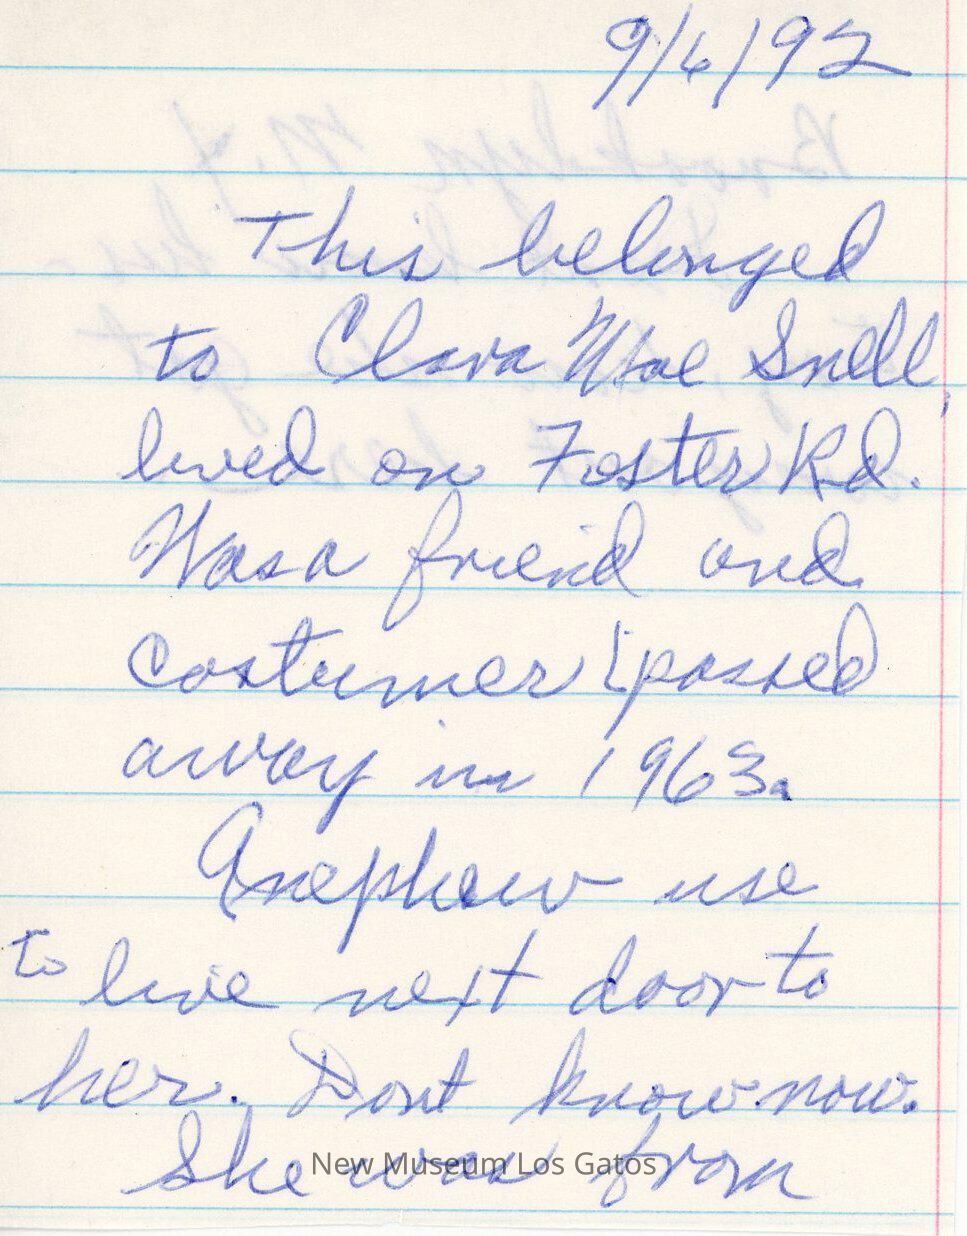 9/6/92
This belonged
to Clara Mae Snell,
lived on Foster Rd.
Was a friend and
costumer (passed
away in 1963.
A nephew use
to live next door to
her. Dont know now.
She was from
New Museum Los Gatos